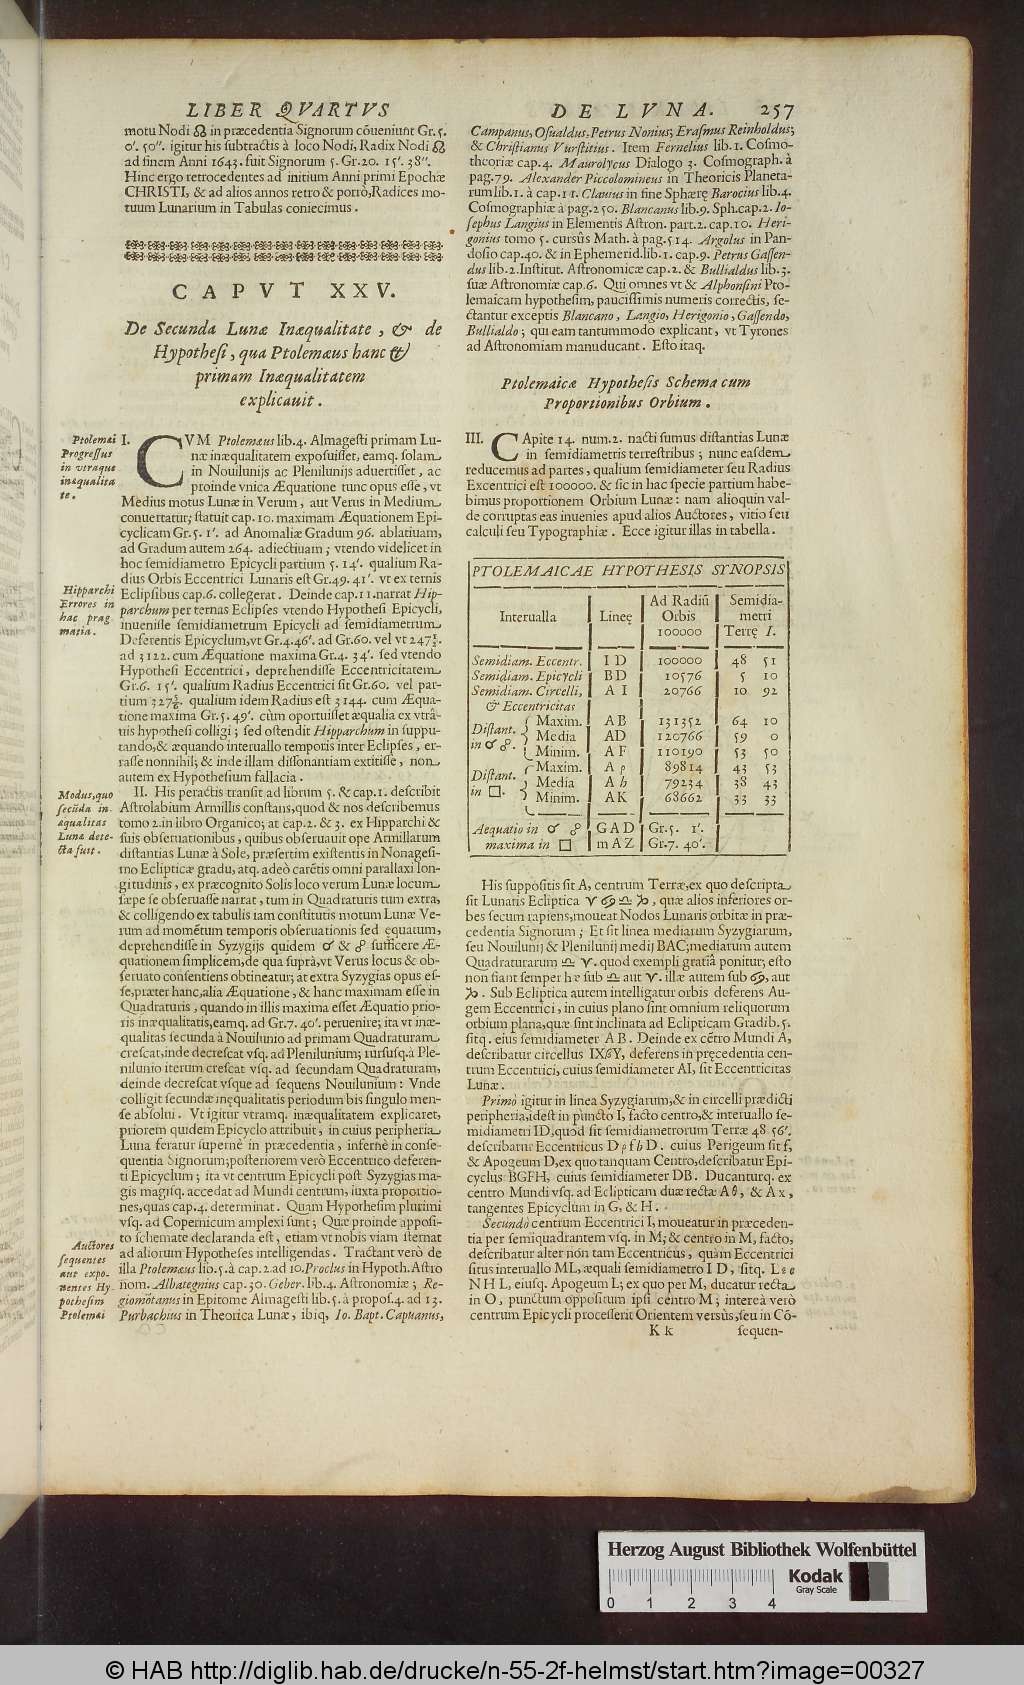 LIBER QVARTVS
DE LVNA. 257
motu Nodi ☊ in præcedentia Signorum cōueniunt Gr. 5.
0'. 50''. igitur his subtractis à loco Nodi, Radix Nodi ☊
ad finem Anni 1643. fuit Signorum 5. Gr. 20. 15'. 38''.
Hinc ergo retrocedentes ad initium Anni primi Epochæ
CHRISTI, & ad alios annos retro & porrò, Radices mo-
tuum Lunarium in Tabulas coniecimus.
CAPVT XXV.
De Secunda Lunæ Inæqualitate, & de
Hypothesi, qua Ptolemæus hanc &
primam Inæqualitatem
explicauit.
Ptolemæi
Progressus
in vtraque
inæqualita
te.
I. CVM Ptolemæus lib. 4. Almagesti primam Lu-
næ inæqualitatem exposuisset, eamq. solam
in Nouilunijs ac Plenilunijs aduertisset, ac
proinde vnica Æquatione tunc opus esse, vt
Medius motus Lunæ in Verum, aut Verus in Medium
conuertatur; statuit cap. 10. maximam Æquationem Epi-
cyclicam Gr. 5. 1'. ad Anomaliæ Gradum 96. ablatiuam,
ad Gradum autem 264. adiectiuam; vtendo videlicet in
hoc semidiametro Epicycli partium 5. 14'. qualium Ra-
dius Orbis Eccentrici Lunaris est Gr. 49. 41'. vt ex ternis
Eclipsibus cap. 6. collegerat. Deinde cap. 11. narrat Hip-
parchum per ternas Eclipses vtendo Hypothesi Epicycli,
inuenisse semidiametrum Epicycli ad semidiametrum
Deferentis Epicyclum, vt Gr. 4. 46'. ad Gr. 60. vel vt 247½.
ad 3122. cum Æquatione maxima Gr. 4. 34'. sed vtendo
Hypothesi Eccentrici, deprehendisse Eccentricitatem
Gr. 6. 15'. qualium Radius Eccentrici sit Gr. 60. vel par-
tium 327⅔. qualium idem Radius est 3144. cum Æqua-
tione maxima Gr. 5. 49'. cùm oportuisset æqualia ex vtrâ-
uis hypothesi colligi; sed ostendit Hipparchum in suppu-
tando, & æquando interuallo temporis inter Eclipses, er-
rasse nonnihil; & inde illam dissonantiam extitisse, non
autem ex Hypothesium fallacia.
Hipparchi
Errores in
hac prag
matia.
II. His peractis transit ad librum 5. & cap. 1. describit
Astrolabium Armillis constans, quod & nos describemus
tomo 2. in libro Organico; at cap. 2. & 3. ex Hipparchi &
suis obseruationibus, quibus obseruauit ope Armillarum
distantias Lunæ à Sole, præsertim existentis in Nonagesi-
mo Eclipticæ gradu, atq. adeò carētis omni parallaxi lon-
gitudinis, ex præcognito Solis loco verum Lunæ locum
sæpe se obseruasse narrat, tum in Quadraturis tum extra,
& colligendo ex tabulis iam constitutis motum Lunæ Ve-
rum ad momētum temporis obseruationis sed ęquatum,
deprehendisse in Syzygijs quidem ☌ & ☍ sufficere Æ-
quationem simplicem, de qua suprà, vt Verus locus & ob-
seruato consentiens obtineatur; at extra Syzygias opus es-
se, præter hanc, alia Æquatione, & hanc maximam esse in
Quadraturis, quando in illis maxima esset Æquatio prio-
ris inæqualitatis, eamq. ad Gr. 7. 40'. peruenire; ita vt inæ-
qualitas secunda à Nouilunio ad primam Quadraturam
crescat, inde decrescat vsq. ad Plenilunium; rursusq. à Ple-
nilunio iterum crescat vsq. ad secundam Quadraturam,
deinde decrescat vsque ad sequens Nouilunium: Vnde
colligit secundæ inęqualitatis periodum bis singulo men-
se absolui. Vt igitur vtramq. inæqualitatem explicaret,
priorem quidem Epicyclo attribuit, in cuius peripheria
Luna feratur supernè in præcedentia, infernè in conse-
quentia Signorum; posteriorem verò Eccentrico deferen-
ti Epicyclum; ita vt centrum Epicycli post Syzygias ma-
gis magisq. accedat ad Mundi centrum, iuxta proportio-
nes, quas cap. 4. determinat. Quam Hypothesim plurimi
vsq. ad Copernicum amplexi sunt; Quæ proinde apposi-
to schemate declaranda est, etiam vt nobis viam sternat
ad aliorum Hypotheses intelligendas. Tractant verò de
illa Ptolemæus lib. 5. à cap. 2. ad 10. Proclus in Hypoth. Astro
nom. Albategnius cap. 30. Geber. lib. 4. Astronomiæ; Re-
giomōtanus in Epitome Almagesti lib. 5. à propos. 4. ad 13.
Purbachius in Theorica Lunæ, ibiq, Io. Bapt. Capuanus,
Modus, quo
secūda in-
æqualitas
Lunæ dete-
cta fuit.
Auctores
sequentes
aut expo-
nentes Hy-
pothesim
Ptolemæi
Campanus, Osualdus, Petrus Nonius, Erasmus Reinholdus;
& Christianus Vurstitius. Item Fernelius lib. 1. Cosmo-
theoriæ cap. 4. Maurolycus Dialogo 3. Cosmograph. à
pag. 79. Alexander Piccolomineus in Theoricis Planeta-
rum lib. 1. à cap. 11. Clauius in fine Sphærę Barocius lib. 4.
Cosmographiæ à pag. 250. Blancanus lib. 9. Sph. cap. 2. Io-
sephus Langius in Elementis Astron. part. 2. cap. 10. Heri-
gonius tomo 5. cursûs Math. à pag. 514. Argolus in Pan-
dosio cap. 40. & in Ephemerid. lib. 1. cap. 9. Petrus Gassen-
dus lib. 2. Institut. Astronomicæ cap. 2. & Bullialdus lib. 3.
suæ Astronomiæ cap. 6. Qui omnes vt & Alphonsini Pto-
lemaicam hypothesim, paucissimis numeris correctis, se-
ctantur exceptis Blancano, Langio, Herigonio, Gassendo,
Bullialdo; qui eam tantummodo explicant, vt Tyrones
ad Astronomiam manuducant. Esto itaq.
Ptolemaicæ Hypothesis Schema cum
Proportionibus Orbium.
III. CApite 14. num. 2. nacti sumus distantias Lunæ
in semidiametris terrestribus; nunc easdem
reducemus ad partes, qualium semidiameter seu Radius
Excentrici est 100000. & sic in hac specie partium habe-
bimus proportionem Orbium Lunæ: nam alioquin val-
de corruptas eas inuenies apud alios Auctores, vitio seu
calculi seu Typographiæ. Ecce igitur illas in tabella.
PTOLEMAICAE HYPOTHESIS SYNOPSIS
Interualla | Lineę | Ad Radiū Orbis 100000 | Semidiametri Terrę I.
Semidiam. Eccentr. | I D | 100000 | 48 51
Semidiam. Epicycli | BD | 10576 | 5 10
Semidiam. Circelli, | A I | 20766 | 10 92
& Eccentricitas
Distant. in ☌ ☍. { Maxim. | A B | 131352 | 64 10
Media | AD | 120766 | 59 0
Minim. | A F | 110190 | 53 50
Distant. in □. { Maxim. | A ρ | 89814 | 43 53
Media | A h | 79234 | 38 43
Minim. | AK | 68662 | 33 33
Aequatio in ☌ ☍ | G A D | Gr. 5. 1'.
maxima in □ | m A Z | Gr. 7. 40'.
His suppositis sit A, centrum Terræ, ex quo descripta
sit Lunaris Ecliptica ♈ ♋ ♎ ♑, quæ alios inferiores or-
bes secum rapiens, moueat Nodos Lunaris orbitæ in præ-
cedentia Signorum; Et sit linea mediarum Syzygiarum,
seu Nouilunij & Plenilunij medij BAC; mediarum autem
Quadraturarum ♎ ♈. quod exempli gratiâ ponitur; esto
non fiant semper hæ sub ♎ aut ♈. illæ autem sub ♋, aut
♑. Sub Ecliptica autem intelligatur orbis deferens Au-
gem Eccentrici, in cuius plano sint omnium reliquorum
orbium plana, quæ sint inclinata ad Eclipticam Gradib. 5.
sitq. eius semidiameter A B. Deinde ex cētro Mundi A,
describatur circellus IXβY, deferens in pręcedentia cen-
trum Eccentrici, cuius semidiameter AI, sit Eccentricitas
Lunæ.
Primò igitur in linea Syzygiarum, & in circelli prædicti
peripheria, idest in pūncto I, facto centro, & interuallo se-
midiametri ID, quod sit semidiametrorum Terræ 48 56'.
describatur Eccentricus D ρ f h D. cuius Perigeum sit f,
& Apogeum D, ex quo tanquam Centro, describatur Epi-
cyclus BGFH, cuius semidiameter DB. Ducantur q. ex
centro Mundi vsq. ad Eclipticam duæ rectæ A θ, & A x,
tangentes Epicyclum in G, & H.
Secundò centrum Eccentrici I, moueatur in præceden-
tia per semiquadrantem vsq. in M; & centro in M, facto,
describatur alter non tam Eccentricus, quàm Eccentrici
situs interuallo ML, æquali semidiametro I D, sitq. L e o
N H L, eiusq. Apogeum L; ex quo per M, ducatur recta
in O, punctum oppositum ipsi centro M; intereà verò
centrum Epicycli processerit Orientem versùs, seu in Cō-
K k sequen-
Herzog August Bibliothek Wolfenbüttel
Kodak
Gray Scale
0 1 2 3 4
© HAB http://diglib.hab.de/drucke/n-55-2f-helmst/start.htm?image=00327